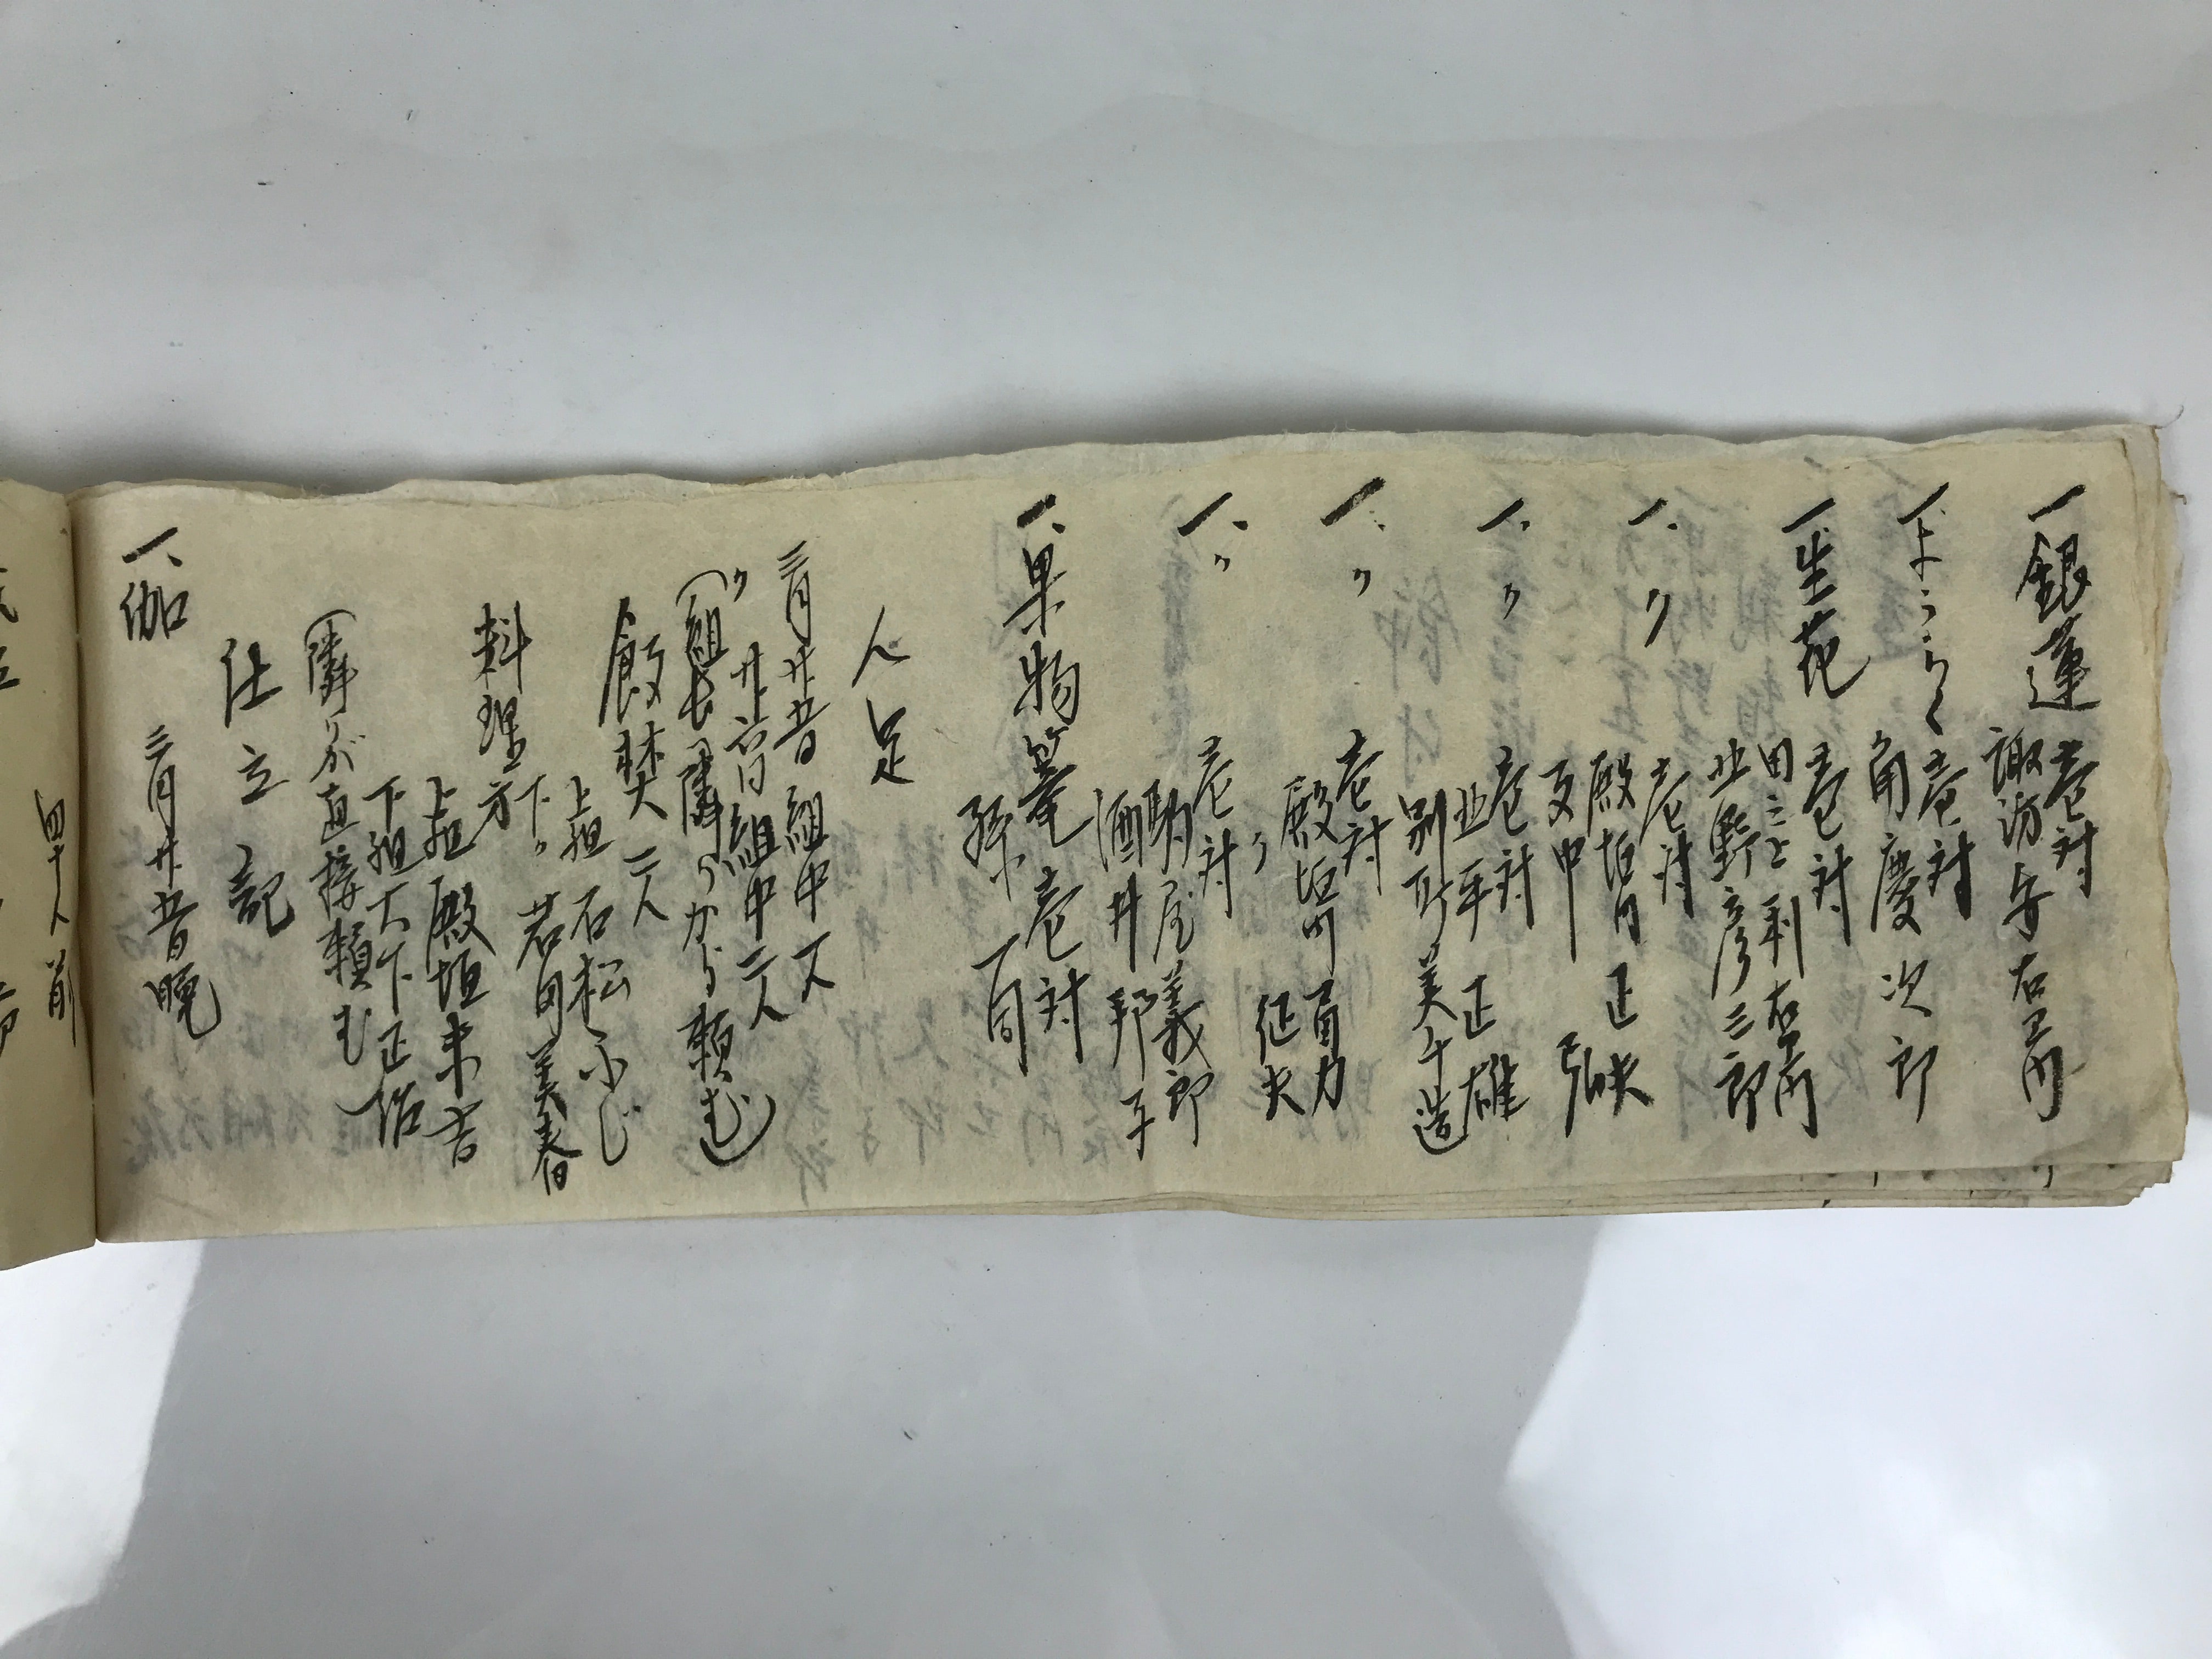 一銀蓮 壱対
諏訪与右エ門
一ようらく 壱対
角慶次郎
一生花 壱対
田ニ上利右エ門
北野彦三郎
一、〃 壱対
殿垣内 正
友中 弘夫
一、〃 壱対
北平 正雄
別所美千造
一、〃 壱対
殿垣内眉力
〃 征夫
一、〃 壱対
駒屋義郎
酒井邦平
一、果物篭 壱対
孫一同
人足
三月廿五日 組中
廿六日 組中二人
〃(組長隣りから頼む)
飯焚二人
上組 石松ふじ
下〃 若田美春
料理方
上組 殿垣末吉
下組 大下正佑
(隣りが直接頼む
仕立記
一、伽 三月廿五日晩
四十人前